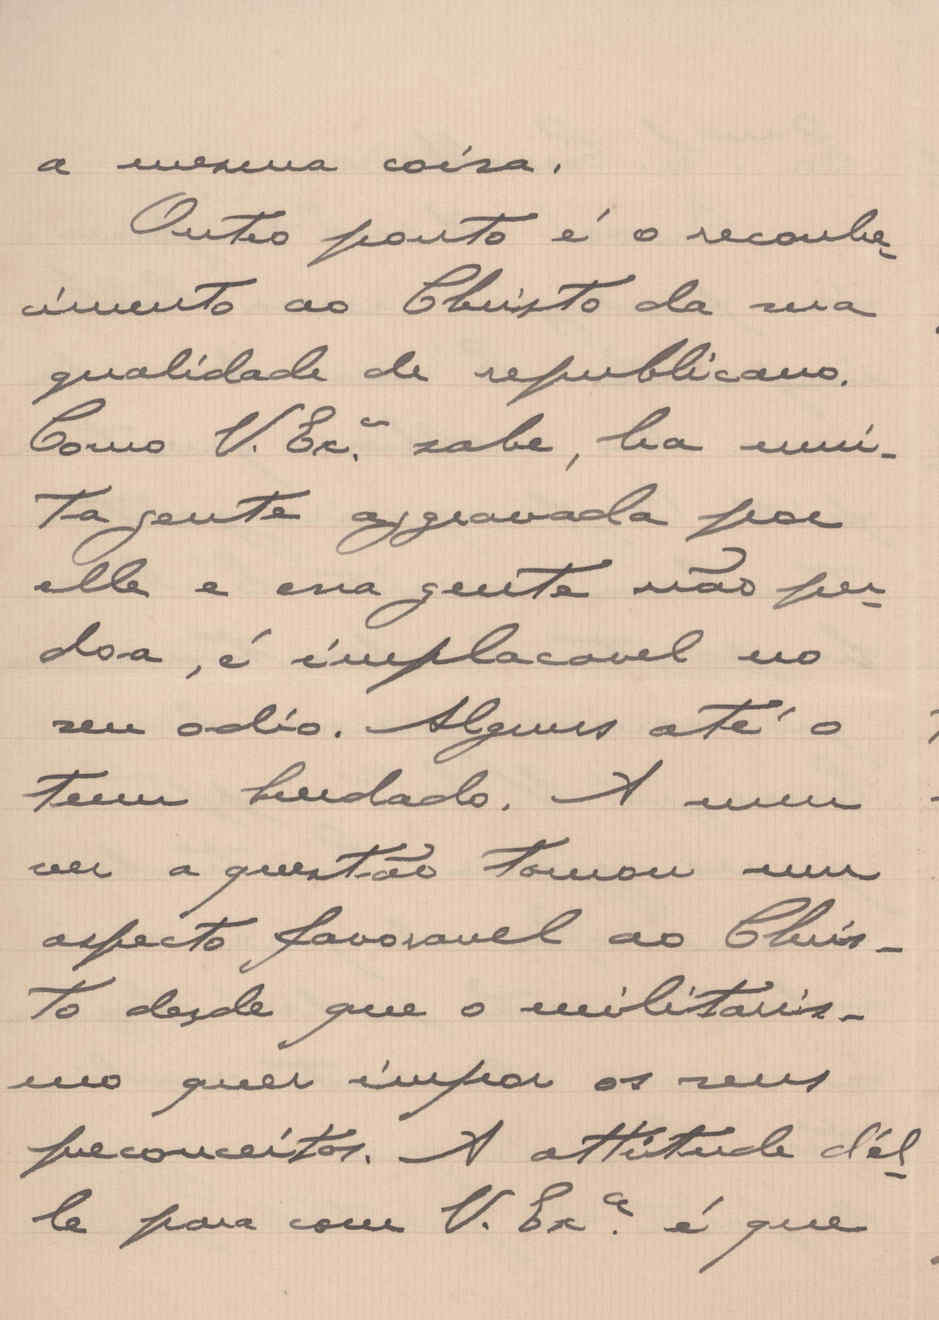 a mesma coisa.
Outro ponto é o reconhe-
cimento ao Christo da sua
qualidade de republicano.
Como V. Exª. sabe, ha mui-
ta gente aggravada por
elle e essa gente não per-
doa, é implacavel no
seu odio. Alguns até o
tem ludado. A meu
ver a questão tomou um
aspecto favoravel ao Chris-
to desde que o militaris-
mo quer impor os seus
preconceitos. A attitude d'él-
le para com V. Exª. é que